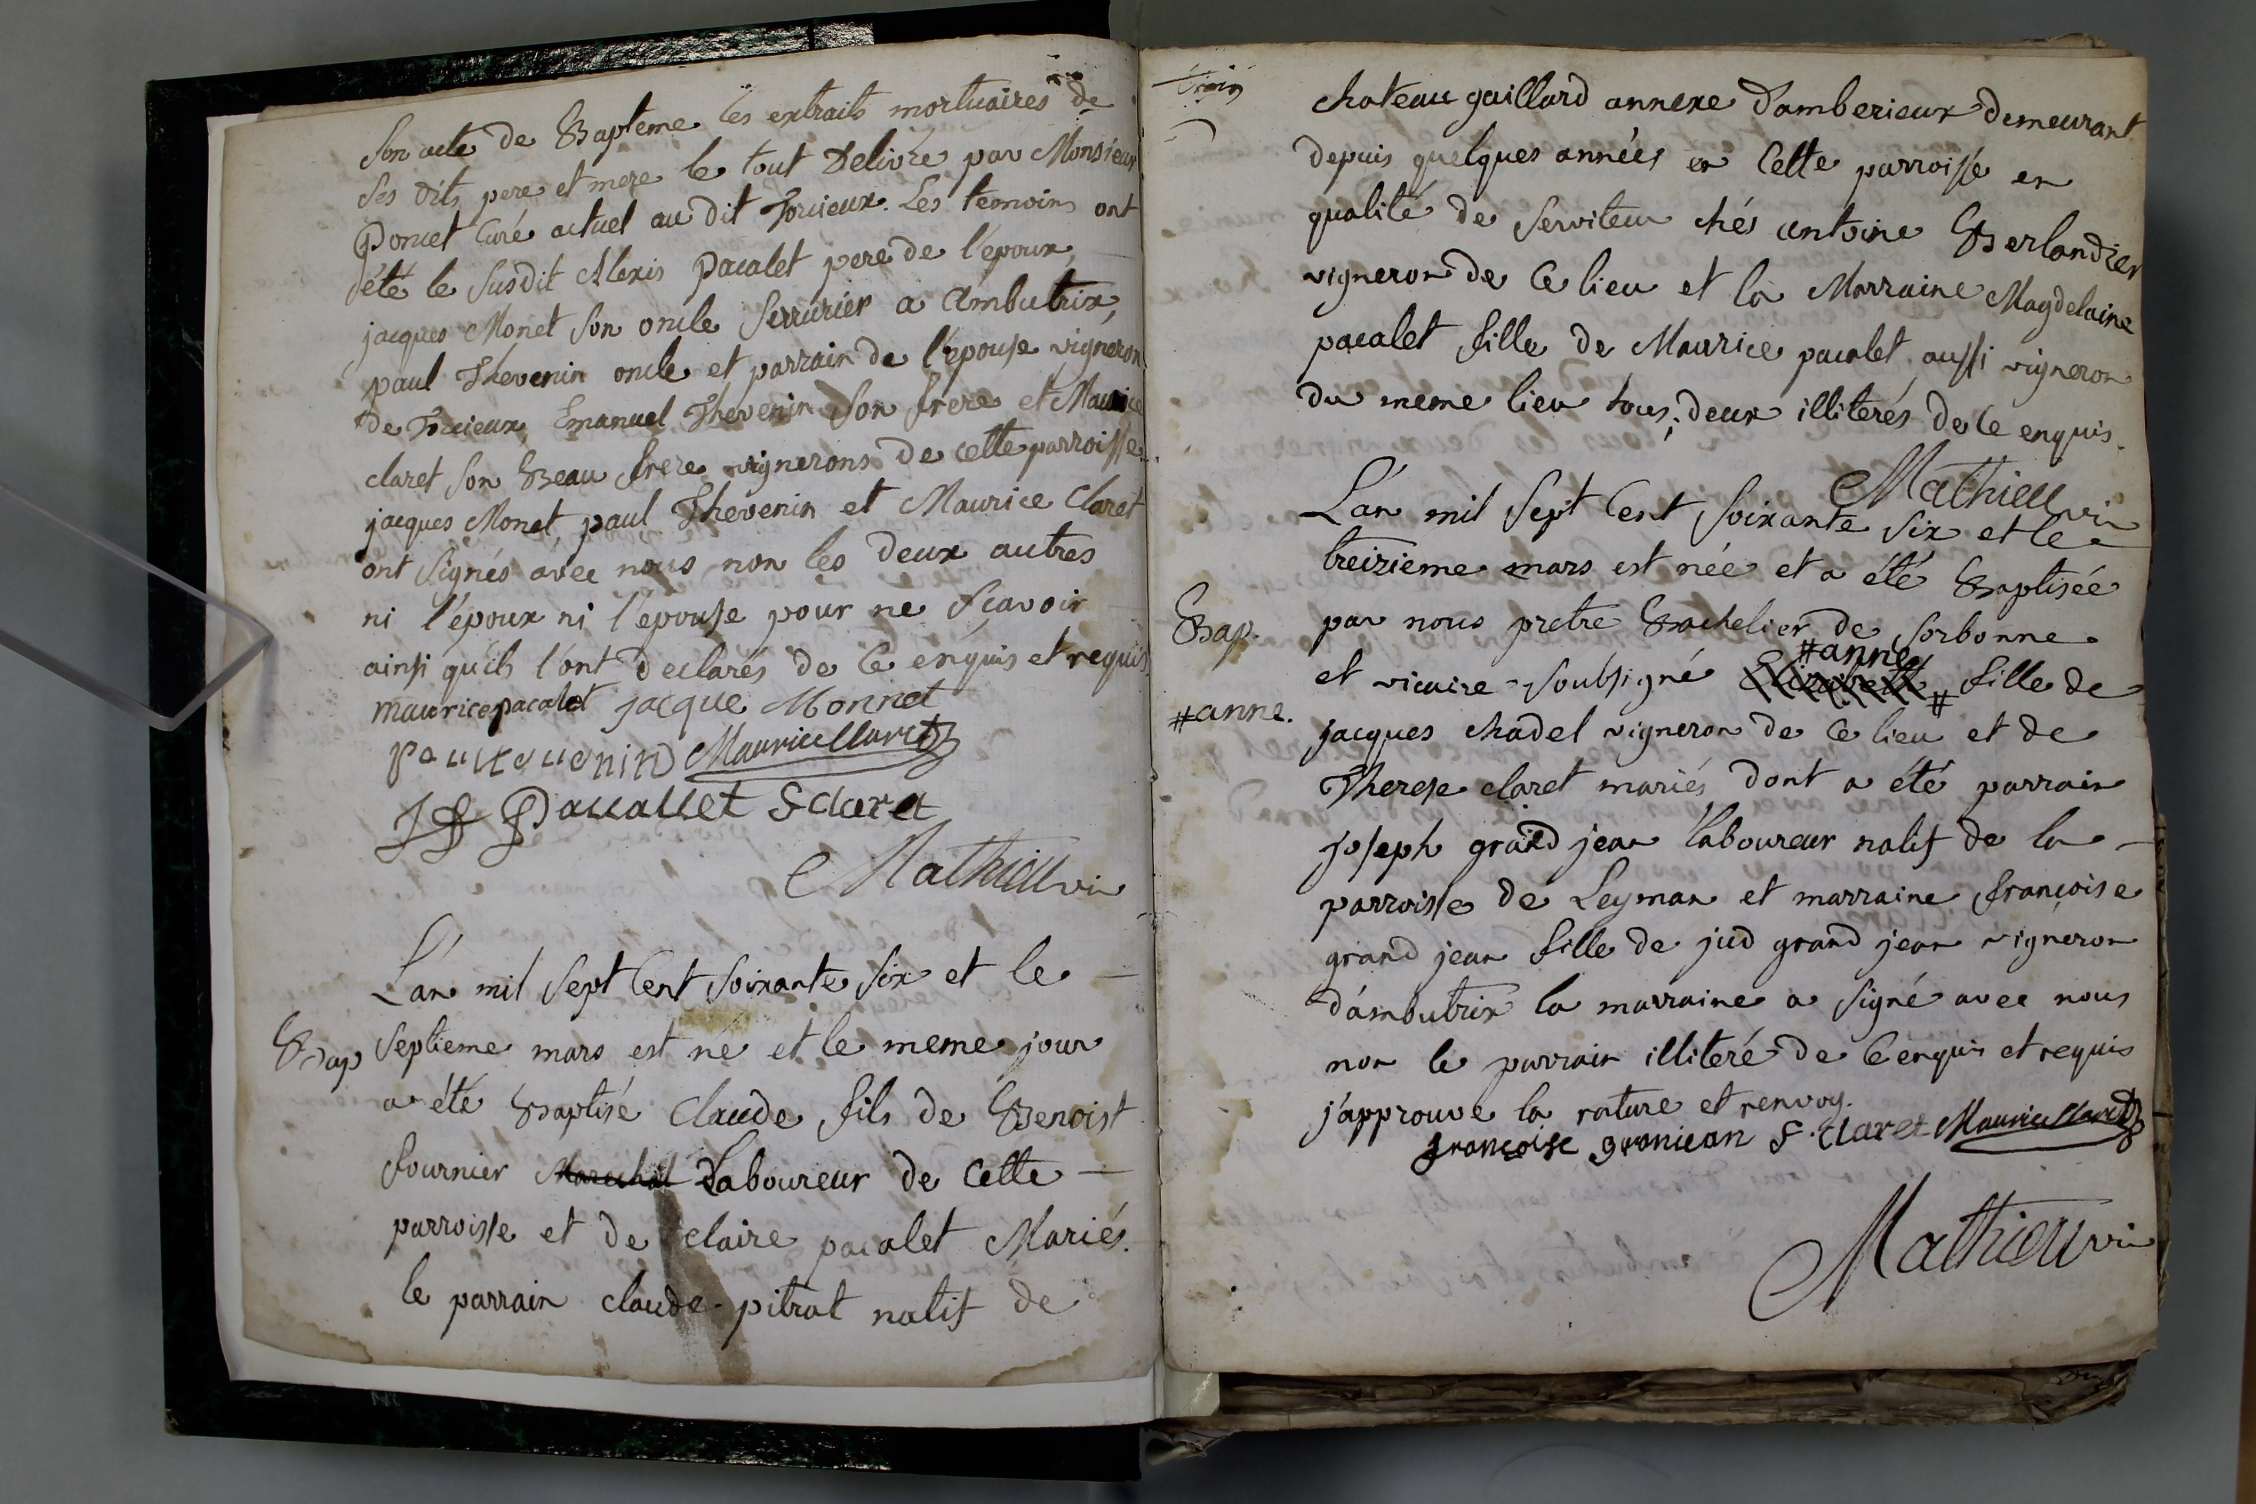 Son acte de Bapteme les extraits mortuaires de
Ses dits pere et mere le tout Delivré par Monsieur
Poncet Curé actuel au dit Torcieux. Les temoins ont
été le Susdit Alexis Pacalet pere de l'époux,
jacques Monet Son oncle Serrurier a Ambutrix,
paul Thevenin oncle et parrain de l'epouse vigneron
de Torcieux, Emanuel Thevenin Son frere et Maurice
claret Son Beau frere vignerons de cette parroisse.
jacques Monet, paul Thevenin et Maurice Claret
ont Signés avec nous non les deux autres
ni l'époux ni l'épouse pour ne Sçavoir
ainsi quils l'ont declarés de Ce enquis et requis
maurice pacalet jacque Monnet
paul tevenin Maurice Claret
Pacallet F claret
Mathieu vic
L'an mil Sept Cent Soixante Six et le
Bap Septieme mars est né et le meme jour
a été Baptisé Claude fils de Benoist
fournier Marechal Laboureur de Cette
parroisse et de claire pacalet Mariés.
le parrain claude pitrat natif de
chateau gaillard annexe d'amberieux demeurant
depuis quelques années en Cette parroisse en
qualité de Serviteur chés antoine Berlandier
vigneron de Ce lieu et la Marraine Magdelaine
pacalet fille de Maurice pacalet aussi vigneron
du meme lieu tous deux illiterés de Ce enquis.
Mathieu vic
L'an mil Sept Cent Soixante Six et le
treizieme mars est née et a été Baptisée
Bap. par nous pretre Bachelier de Sorbonne
#anne
et vicaire Soubsigné Elizabeth # fille de
#anne. jacques chadel vigneron de Ce lieu et de
Therese claret mariés dont a été parrain
joseph grand jean laboureur natif de la
parroisse de Leyman et marraine françoise
grand jean fille de jud grand jean vigneron
d'ambutrix la marraine a Signé avec nous
non le parrain illiteré de Ce enquis et requis
j'approuve la rature et renvoy.
françoise granjean F. Claret Maurice Claret
Mathieu vic